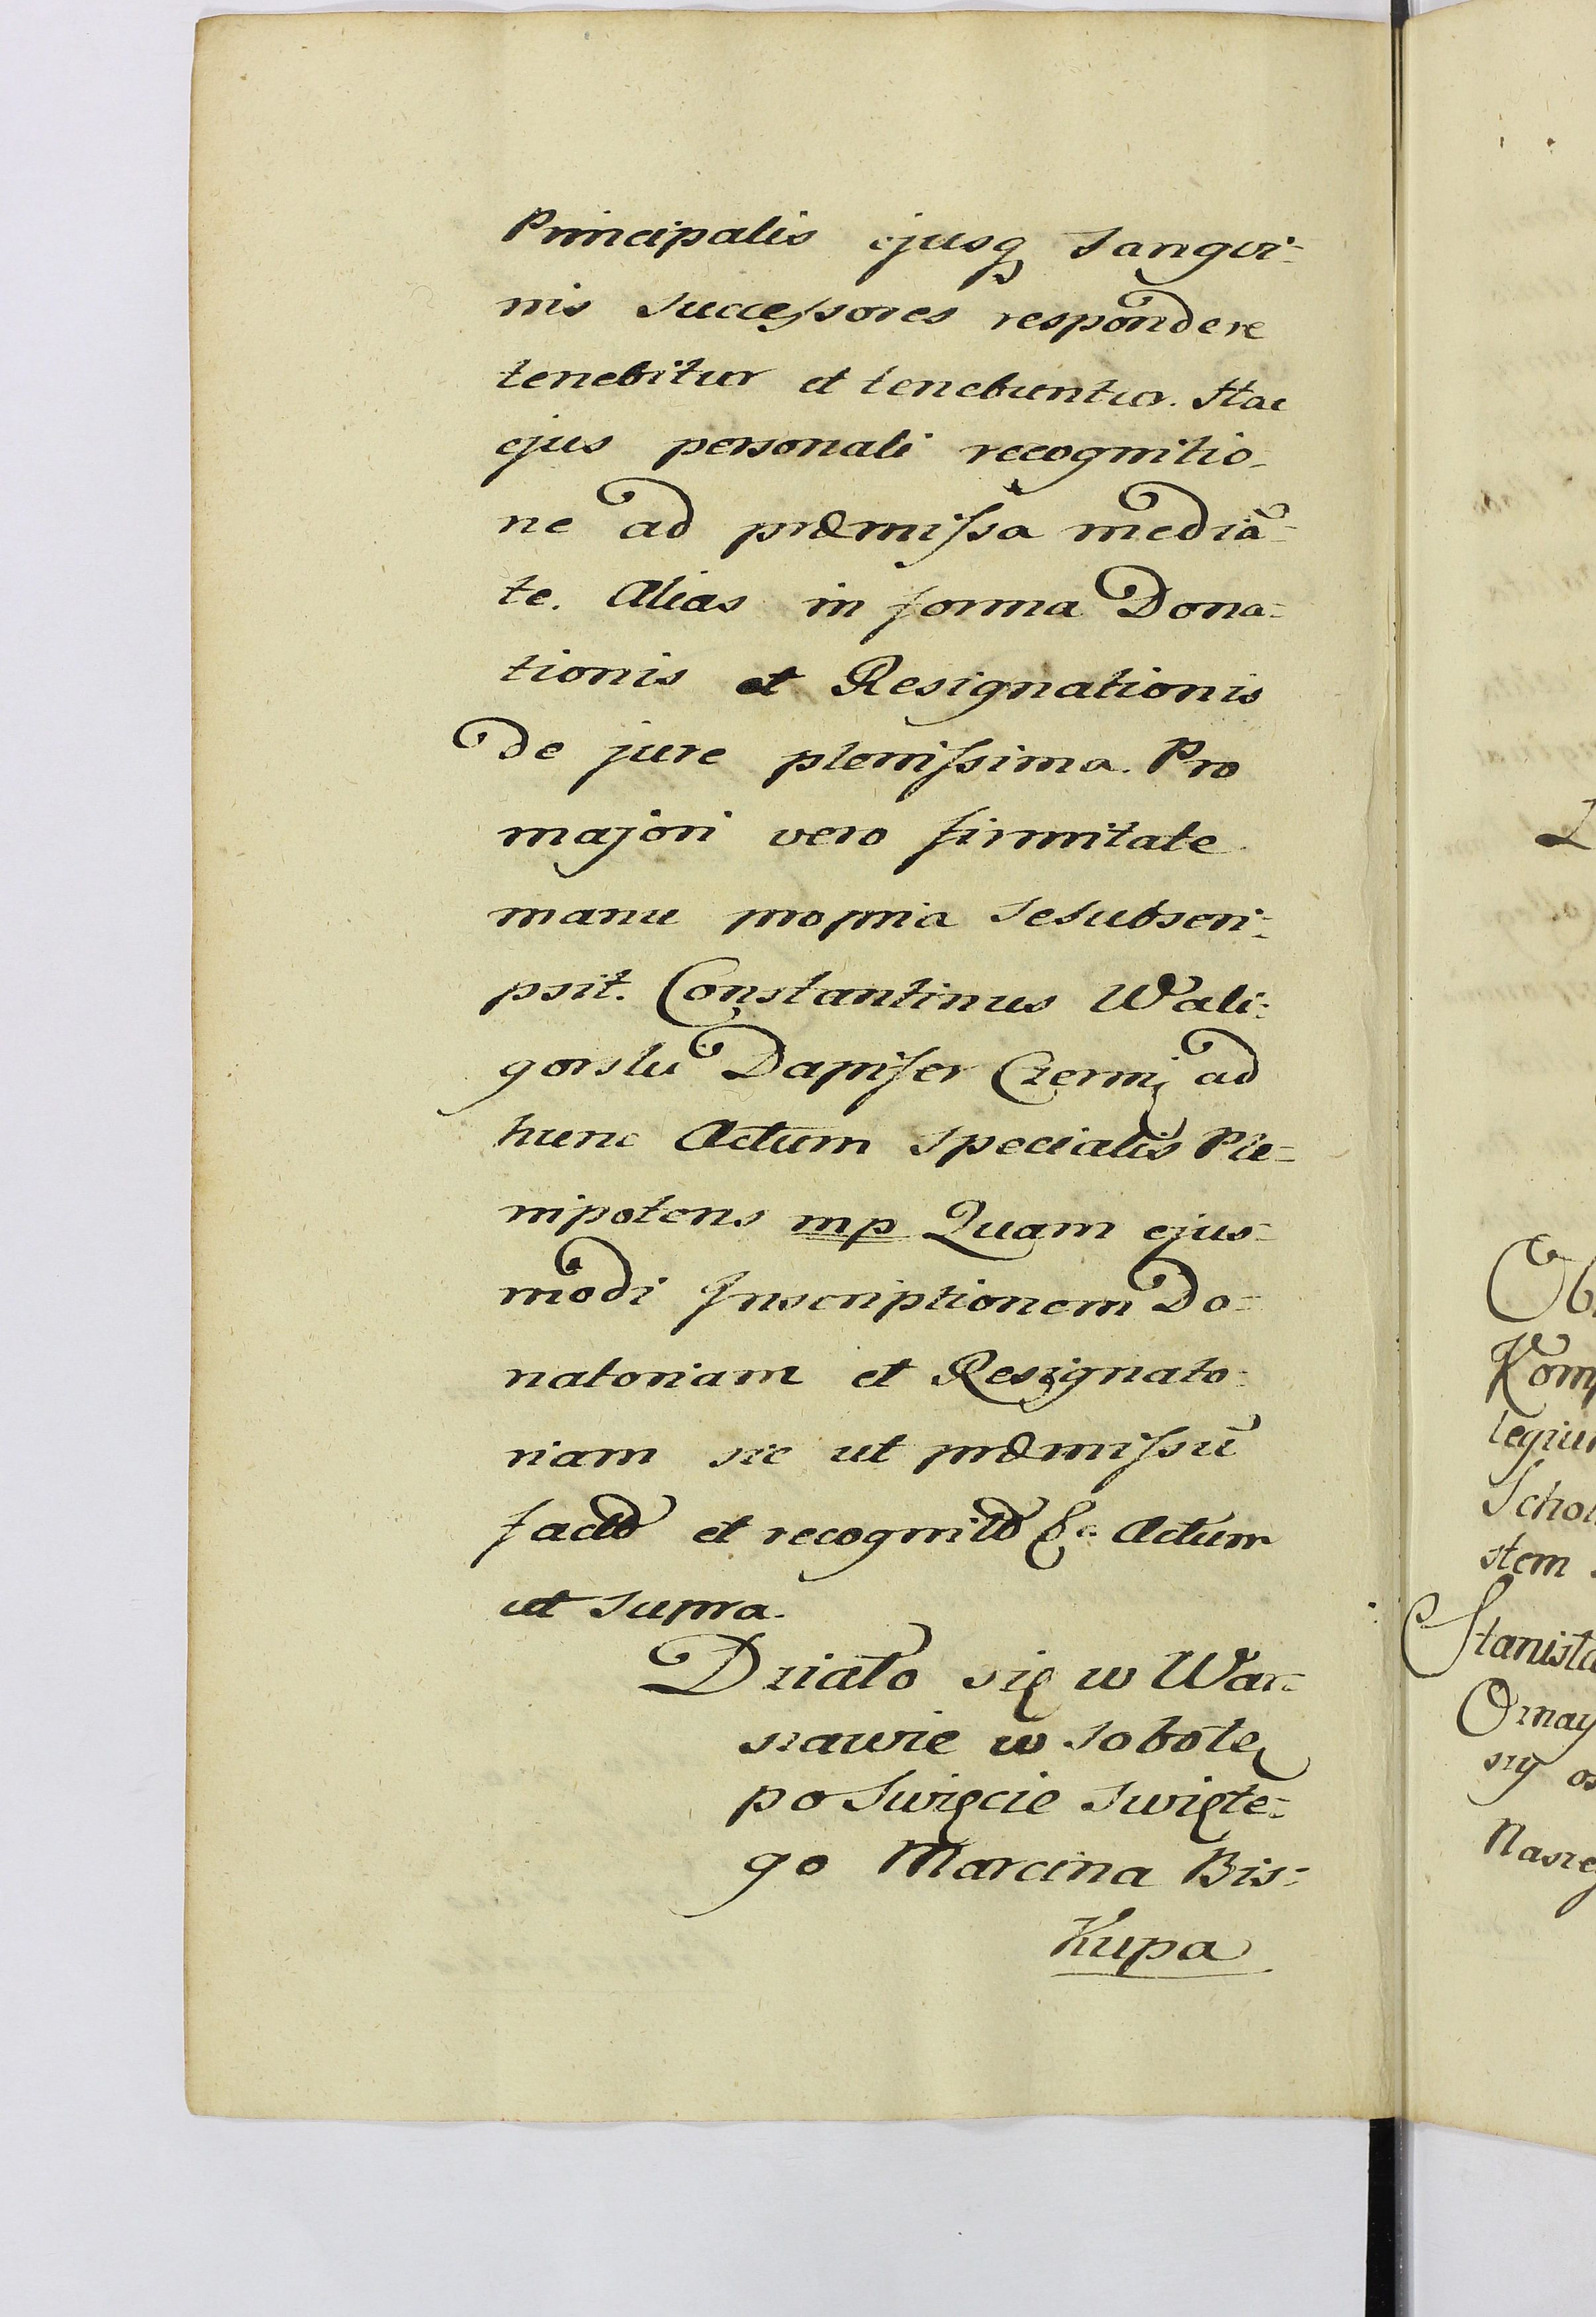 Principalis ejusq̨ sangvi-
nis successores respondere
tenebitur et tenebuntur. Hac
ejus personali recognitio-
ne ad præmissa media-
te. Alias in forma Dona=
tionis et Resignationis
de jure plenissima. Pro
majori vero firmitate
manu propria sesubscri=
psit. Constantinus Wali=
gorski Dapifer Czerni: ad
hunc Actum specialis Ple=
nipotens mp Quam ejus=
modi Inscriptionem Do=
natoriam et Resignato=
riam sic ut præmissũ
facto et recognito &c. Actum
ut supra.
Działo się w War=
szawie w sobotę
po Swięcie Swięte=
go Marcina Bis=
kupa
Ob
Kom
legiu
Schol
stem
Stanisła
Omay
szy os
Nasze